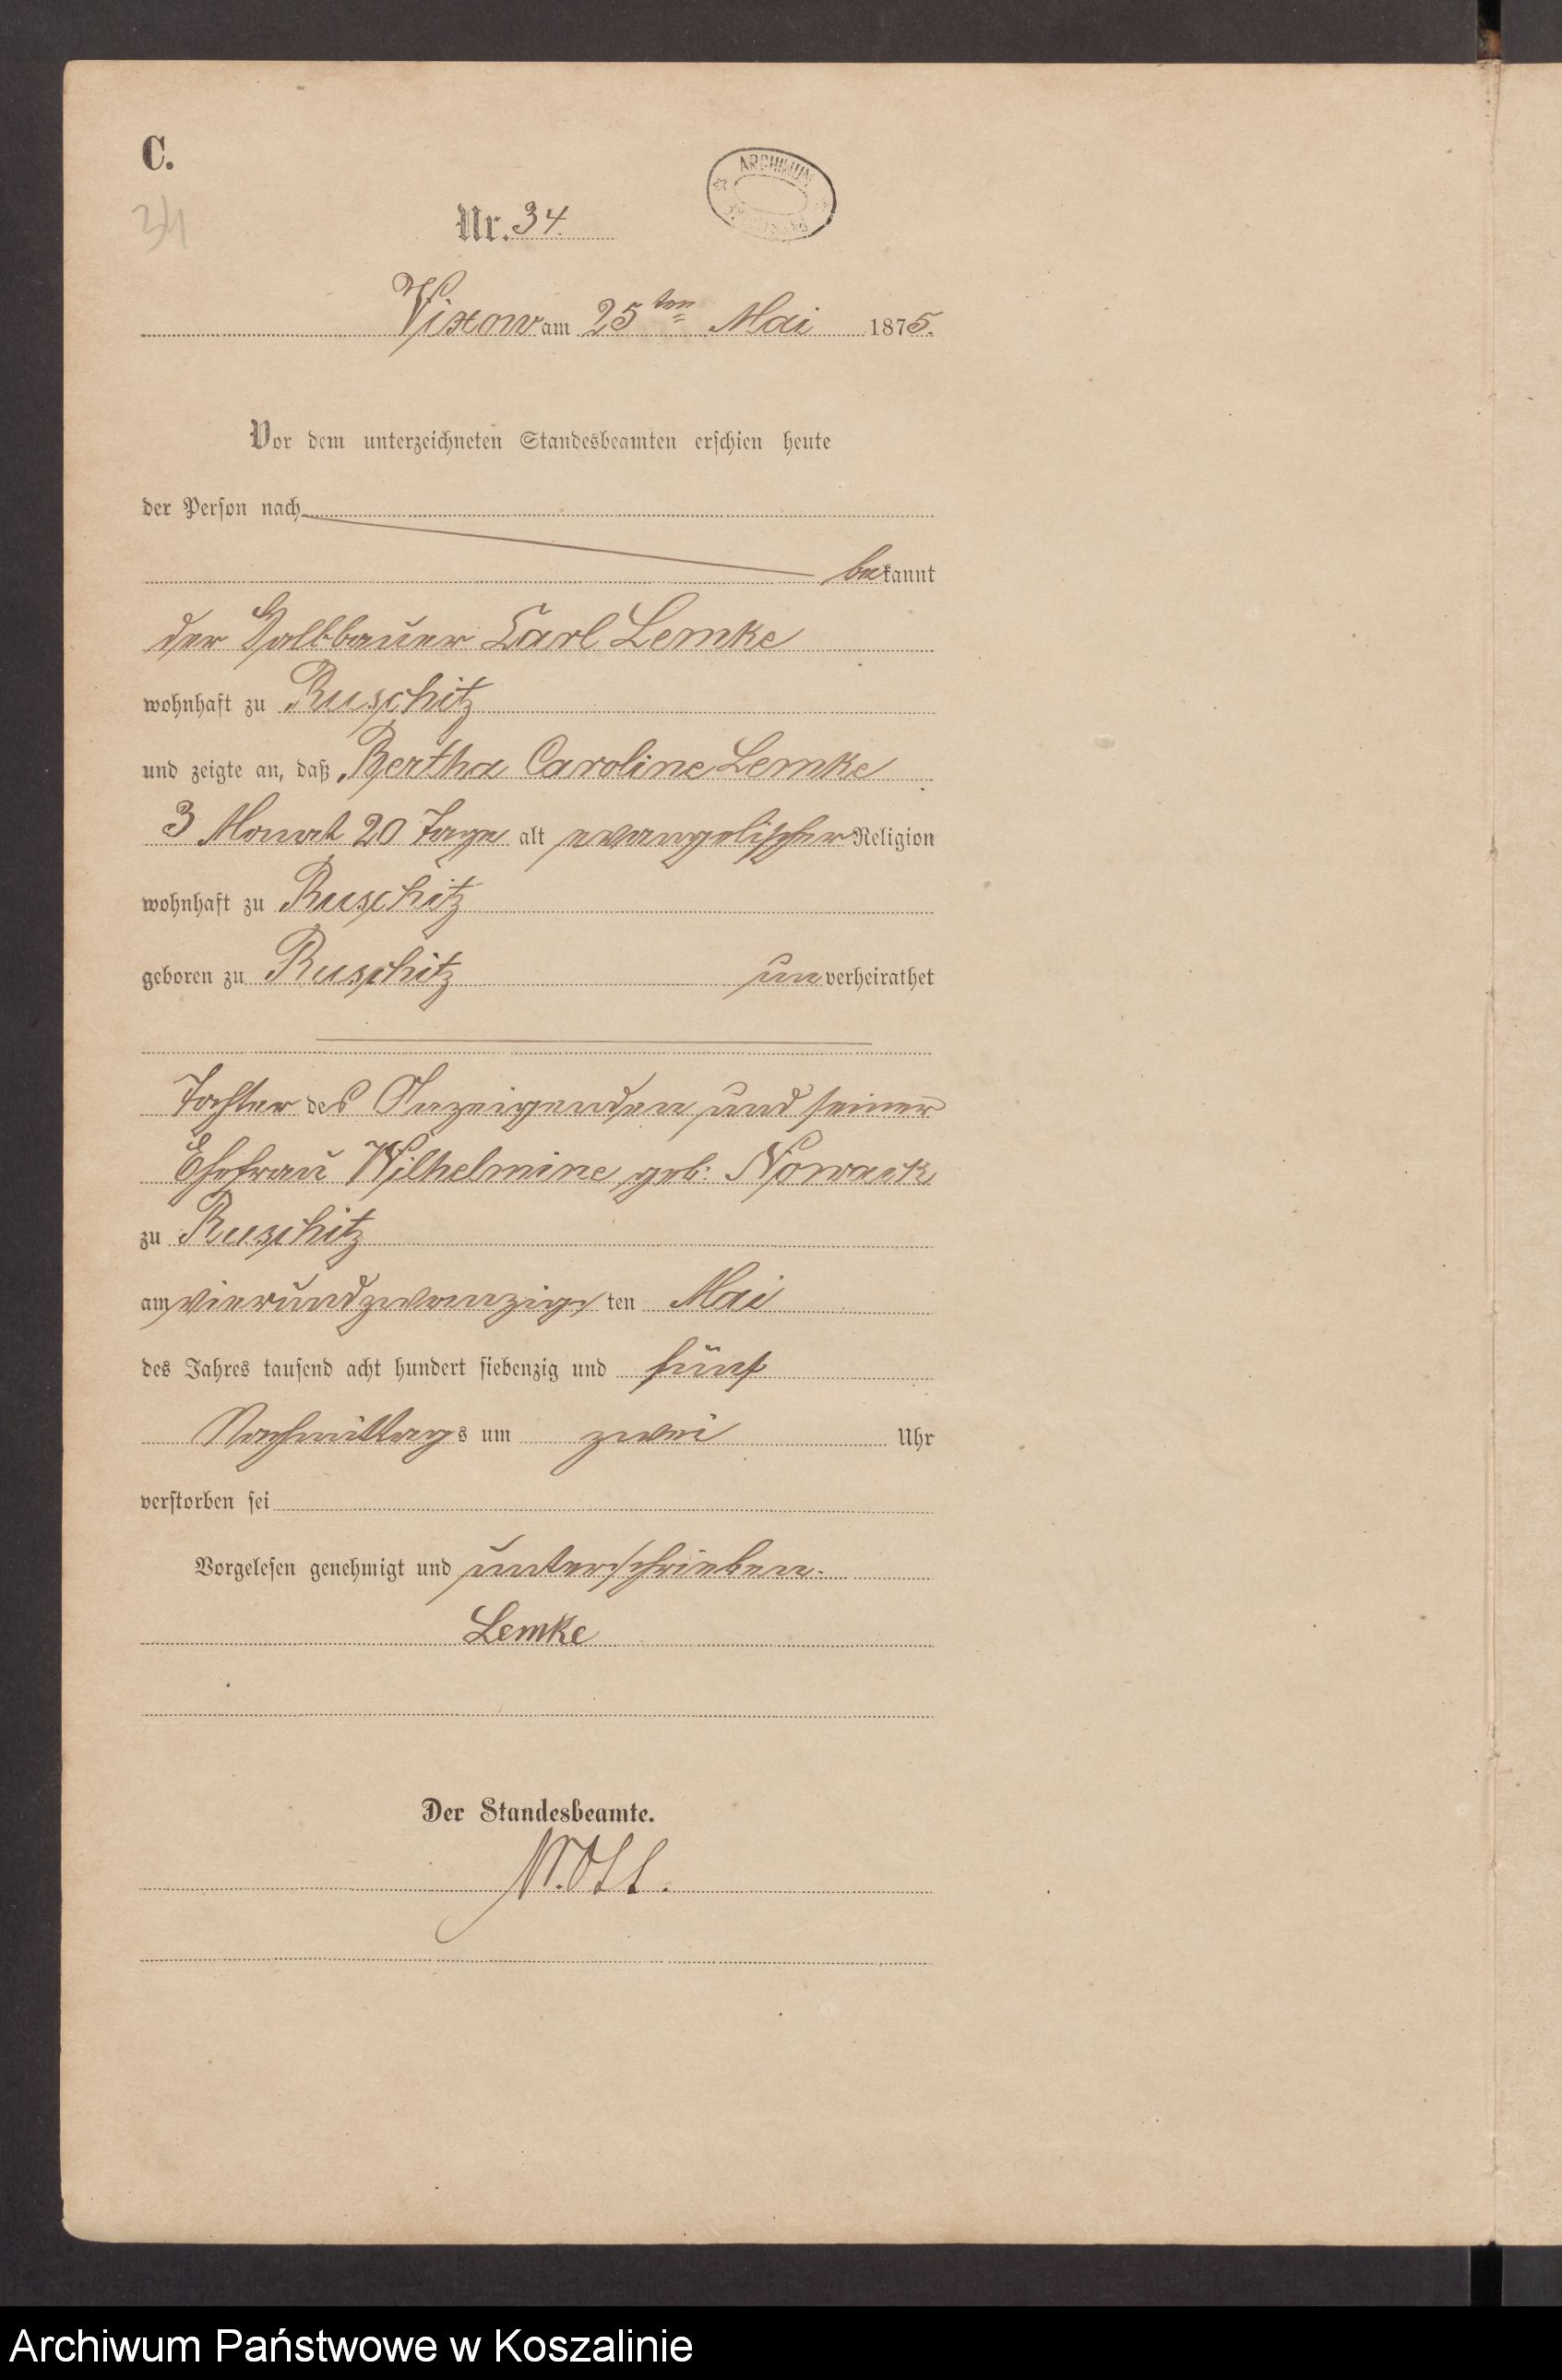 C.
34
ARCHIWUM
Nr. 34.
Vixow am 25ten Mai 1875.
Vor dem unterzeichneten Standesbeamten erschien heute
der Person nach
bekannt
der Halbbauer Carl Lemke
wohnhaft zu Ruschitz
und zeigte an, daß Bertha Caroline Lemke
3 Monat 20 Tage alt evangelischer Religion
wohnhaft zu Ruschitz
geboren zu Ruschitz unverheirathet
Tochter des Anzeigenden und seiner
Ehefrau Wilhelmine geb. Nowack
zu Ruschitz
am vierundzwanzigsten Mai
des Jahres tausend acht hundert siebenzig und fünf
Nachmittags um zwei Uhr
verstorben sei
Vorgelesen genehmigt und unterschrieben.
Lemke
Der Standesbeamte.
Archiwum Państwowe w Koszalinie